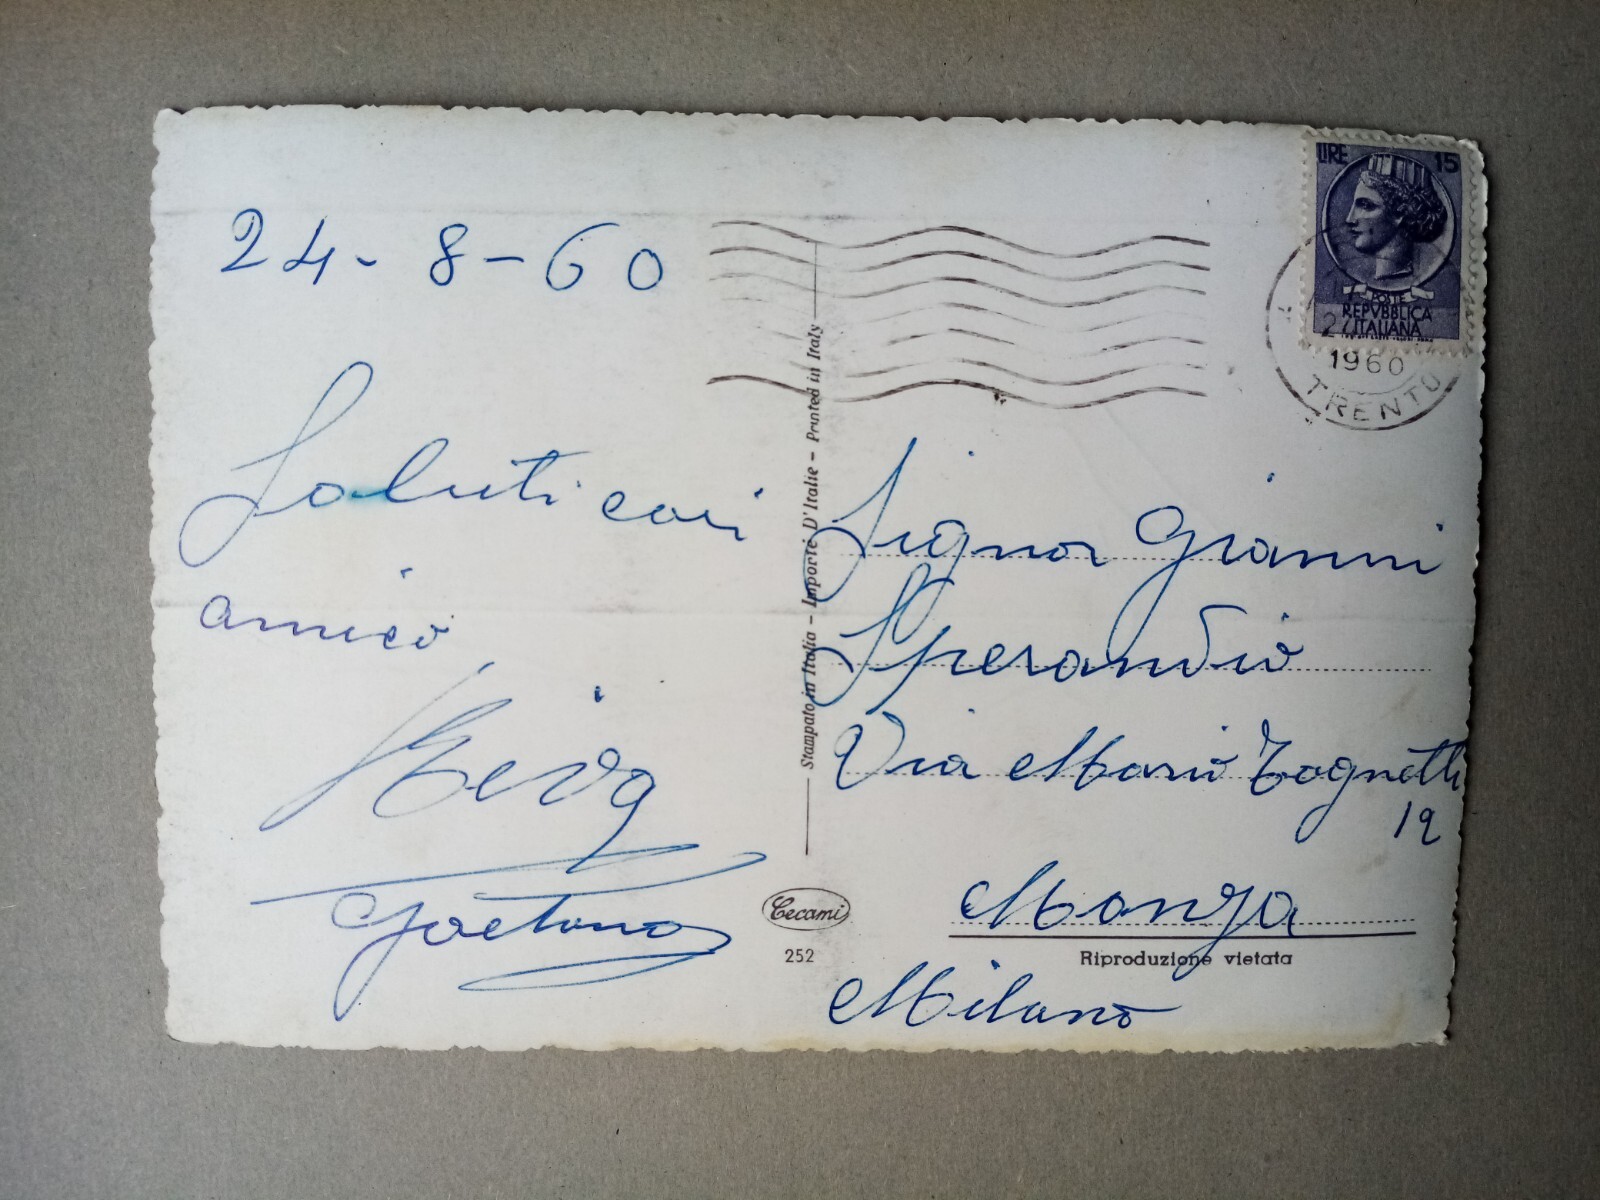 24-8-60
Saluti cari
amico
Gaetano
Stampato in Italia - Importé D'Italie - Printed in Italy
Cecami
252
LIRE 15
POSTE
REPVBBLICA
ITALIANA
1960
TRENTO
Signor Gianni
Sperandio
Via Mario Tognetti
19
Monza
Riproduzione vietata
Milano